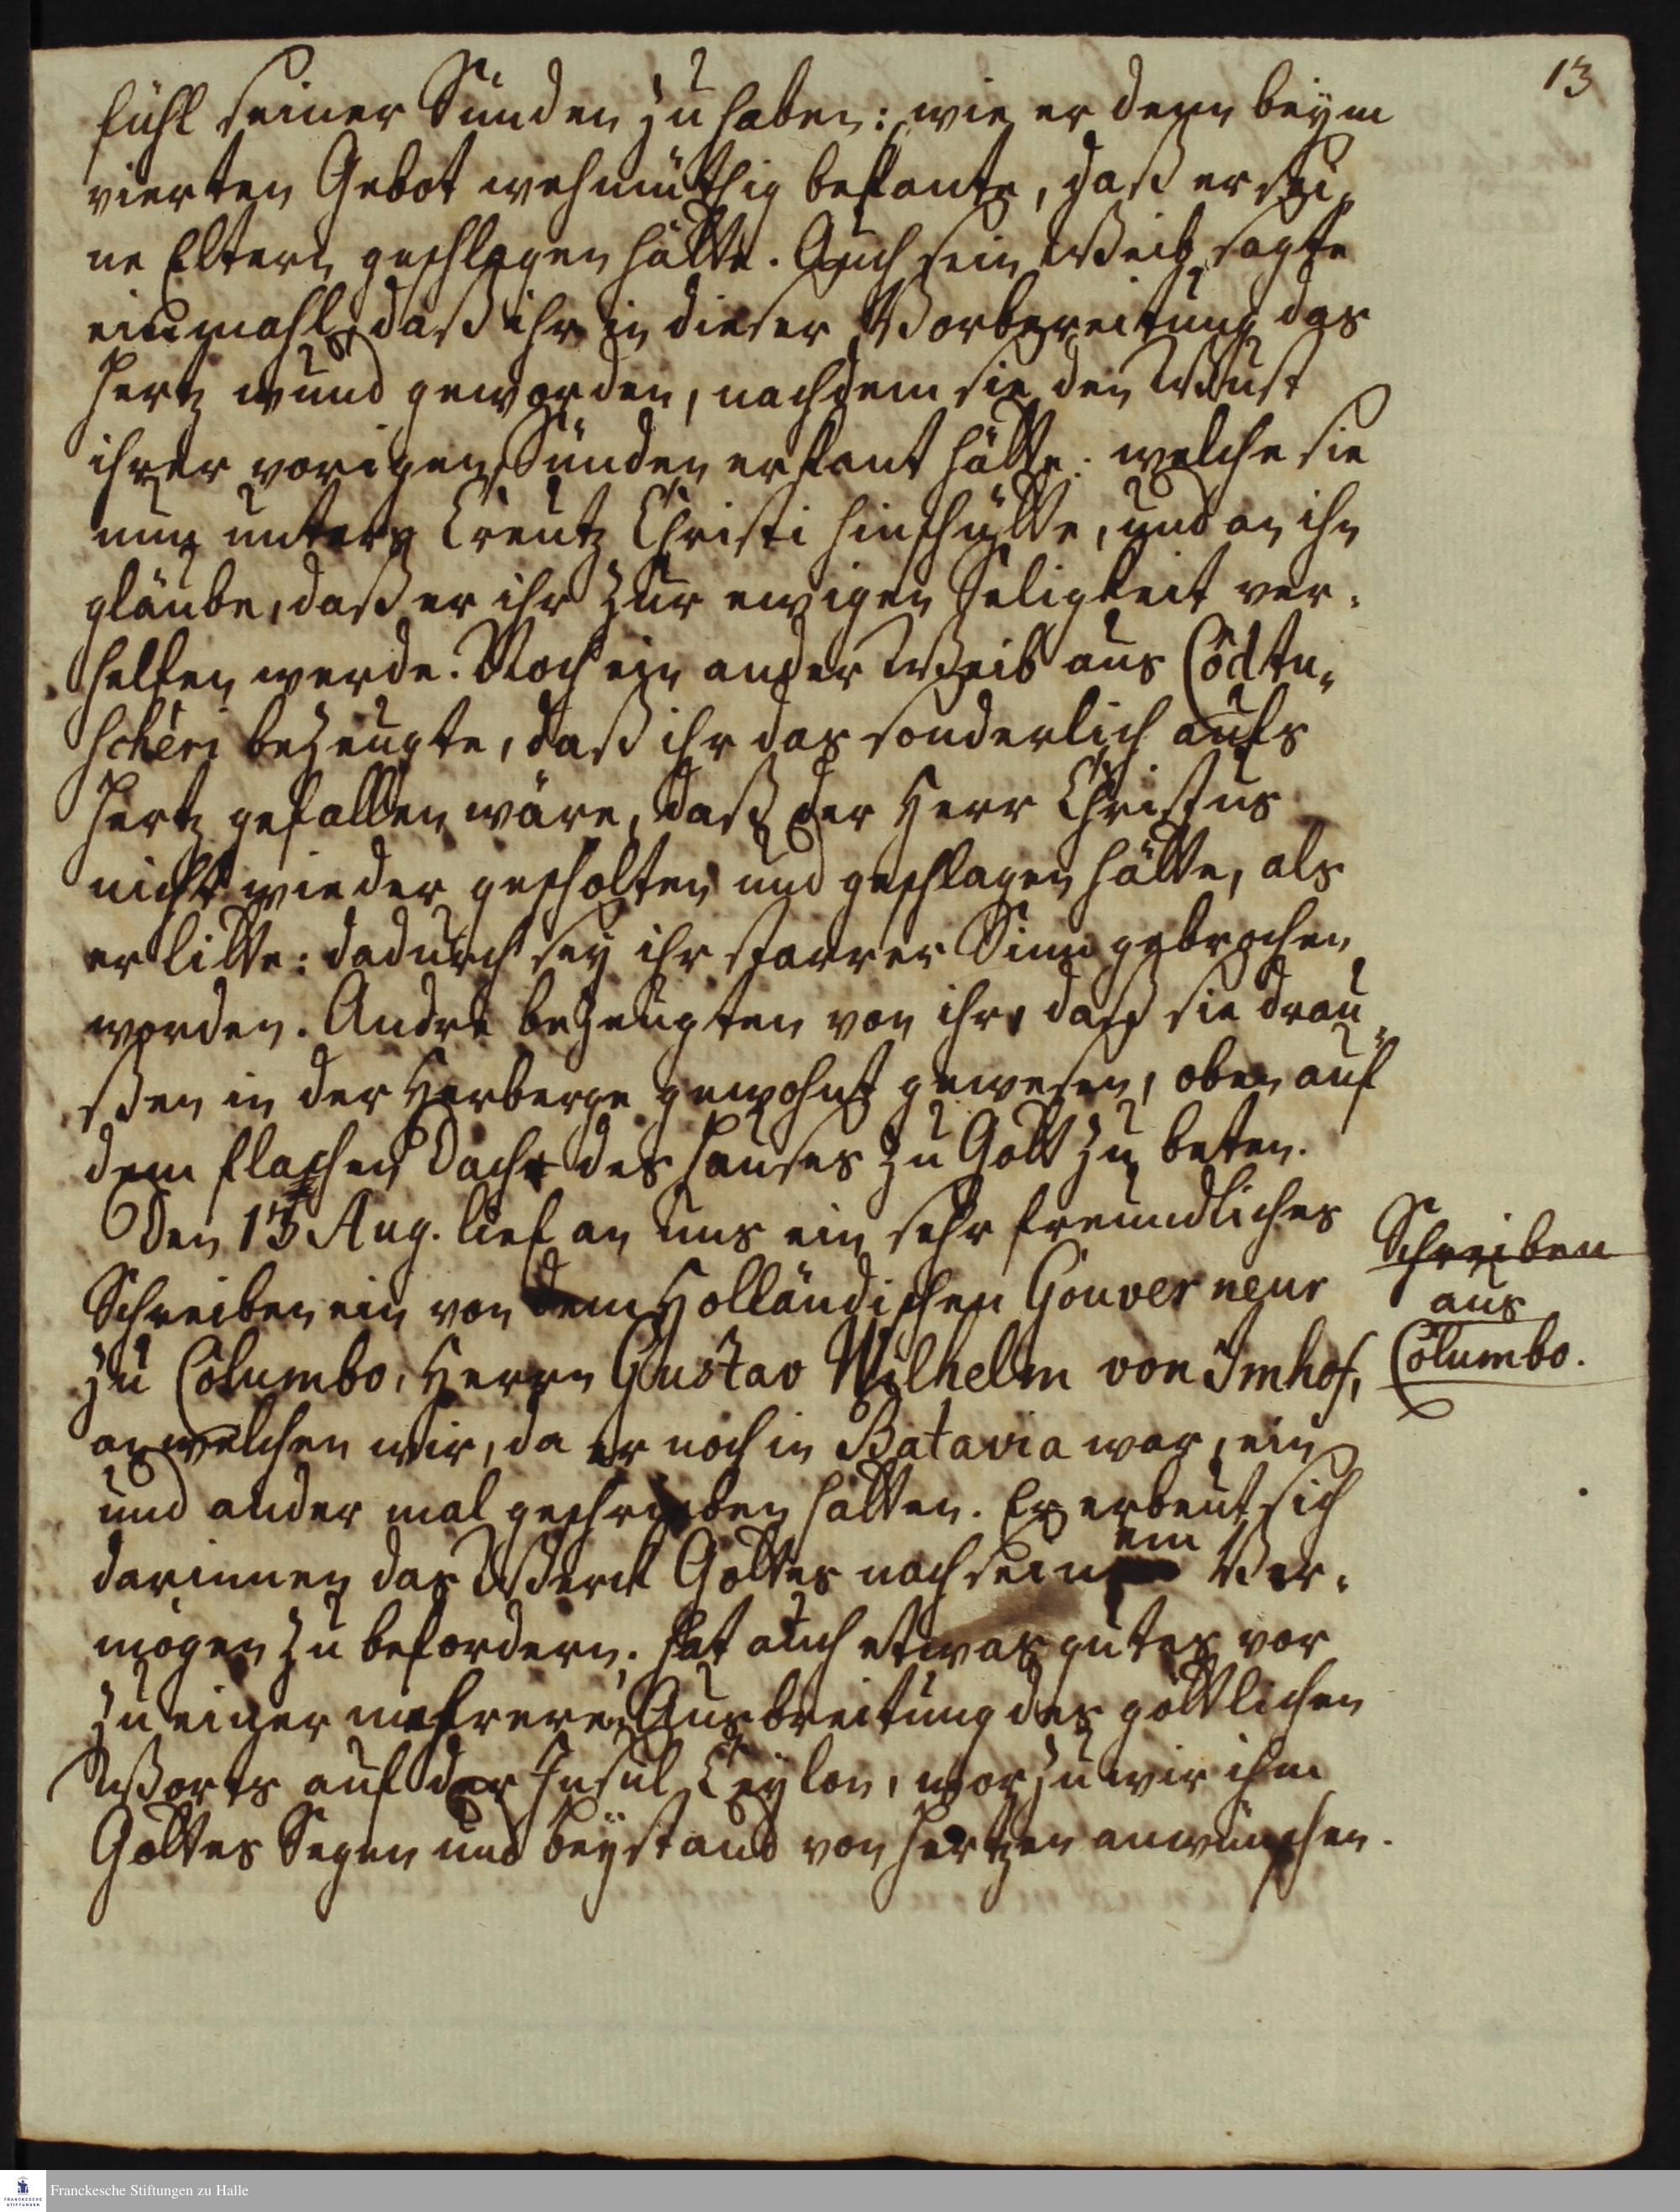 13
fühl seiner Sünden zu haben: wie er denn beym
vierten Gebot wehmüthig bekante, daß er sei-
ne Eltern geschlagen hätte. Auch sein Weib sagte
einmahl, daß ihr in dieser Vorbereitung das
Hertz wund geworden, nachdem sie den Wust
ihrer vorigen Sünden erkant hätte: welche sie
nun unters Creutz Christi hinschütte, und an ihn
gläube, daß er ihr zur ewigen Seligkeit ver-
helfen werde. Noch ein ander Weib aus Códtu-
schéri bezeugte, daß ihr das sonderlich aufs
Hertz gefallen wäre, daß der Herr Christus
nicht wieder gescholten und geschlagen hätte, als
er litte: dadurch sey ihr starrer Sinn gebrochen
worden. Andre bezeugten von ihr, daß sie drau-
ßen in der Herberge gewohnt gewesen, oben auf
dem flachen Dache des Hauses zu Gott zu beten.
Den 13 Aug. lief an uns ein sehr freundliches
Schreiben ein von dem Holländischen Gouverneur
zu Columbo, Herrn Gustav Wilhelm von Imhof,
an welchen wir, da er noch in Batavia war, ein
und ander mal geschrieben hatten. Er erbeut sich
darinnen das Werck Gottes nach seinem Ver-
mögen zu befordern; hat auch etwas gutes vor
zu einer mehreren Ausbreitung des göttlichen
Worts auf der Insul Ceylon, worzu wir ihm
Gottes Segen und Beystand von Hertzen anwünschen.
Schreiben
aus
Columbo.
Franckesche Stiftungen zu Halle